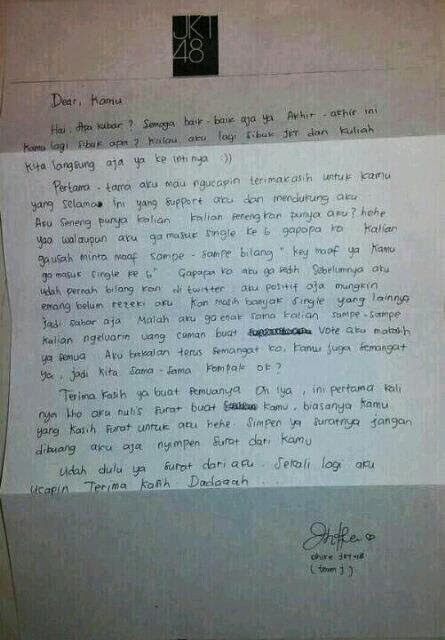 JKT
48
Dear, Kamu
Hai. Apa kabar? Semoga baik-baik aja ya Akhir-akhir ini
kamu lagi sibuk apa? Kalau aku lagi sibuk JKT dan kuliah
Kita langsung aja ya ke intinya :))
Pertama-tama aku mau ngucapin terimakasih untuk kamu
yang selama ini yang support aku dan mendukung aku
Aku seneng punya kalian kalian seneng kan punya aku? hehe
yaa walaupun aku ga masuk single ke 6 gapapa ko kalian
gausah minta maaf sampe-sampe bilang "key maaf ya kamu
ga masuk single ke 6" Gapapa ko aku ga sedih Sebelumnya aku
udah pernah bilang kan di twitter. aku positif aja mungkin
emang belum rezeki aku kan masih banyak single yang lainnya
jadi sabar aja Malah aku ga enak sama kalian sampe-sampe
kalian ngeluarin uang cuman buat vote aku makasih
ya semua Aku bakalan terus semangat ko, kamu juga semangat
ya, jadi kita sama-sama kompak ok?
Terima kasih ya buat semuanya Oh iya, ini pertama kali
nya lho aku nulis surat buat kamu, biasanya kamu
yang kasih surat untuk aku hehe. Simpen ya suratnya jangan
dibuang aku aja nyimpen surat dari kamu
Udah dulu ya surat dari aku. Sekali lagi aku
ucapin Terima kasih Dadaaah ...
JKT48
(team J)